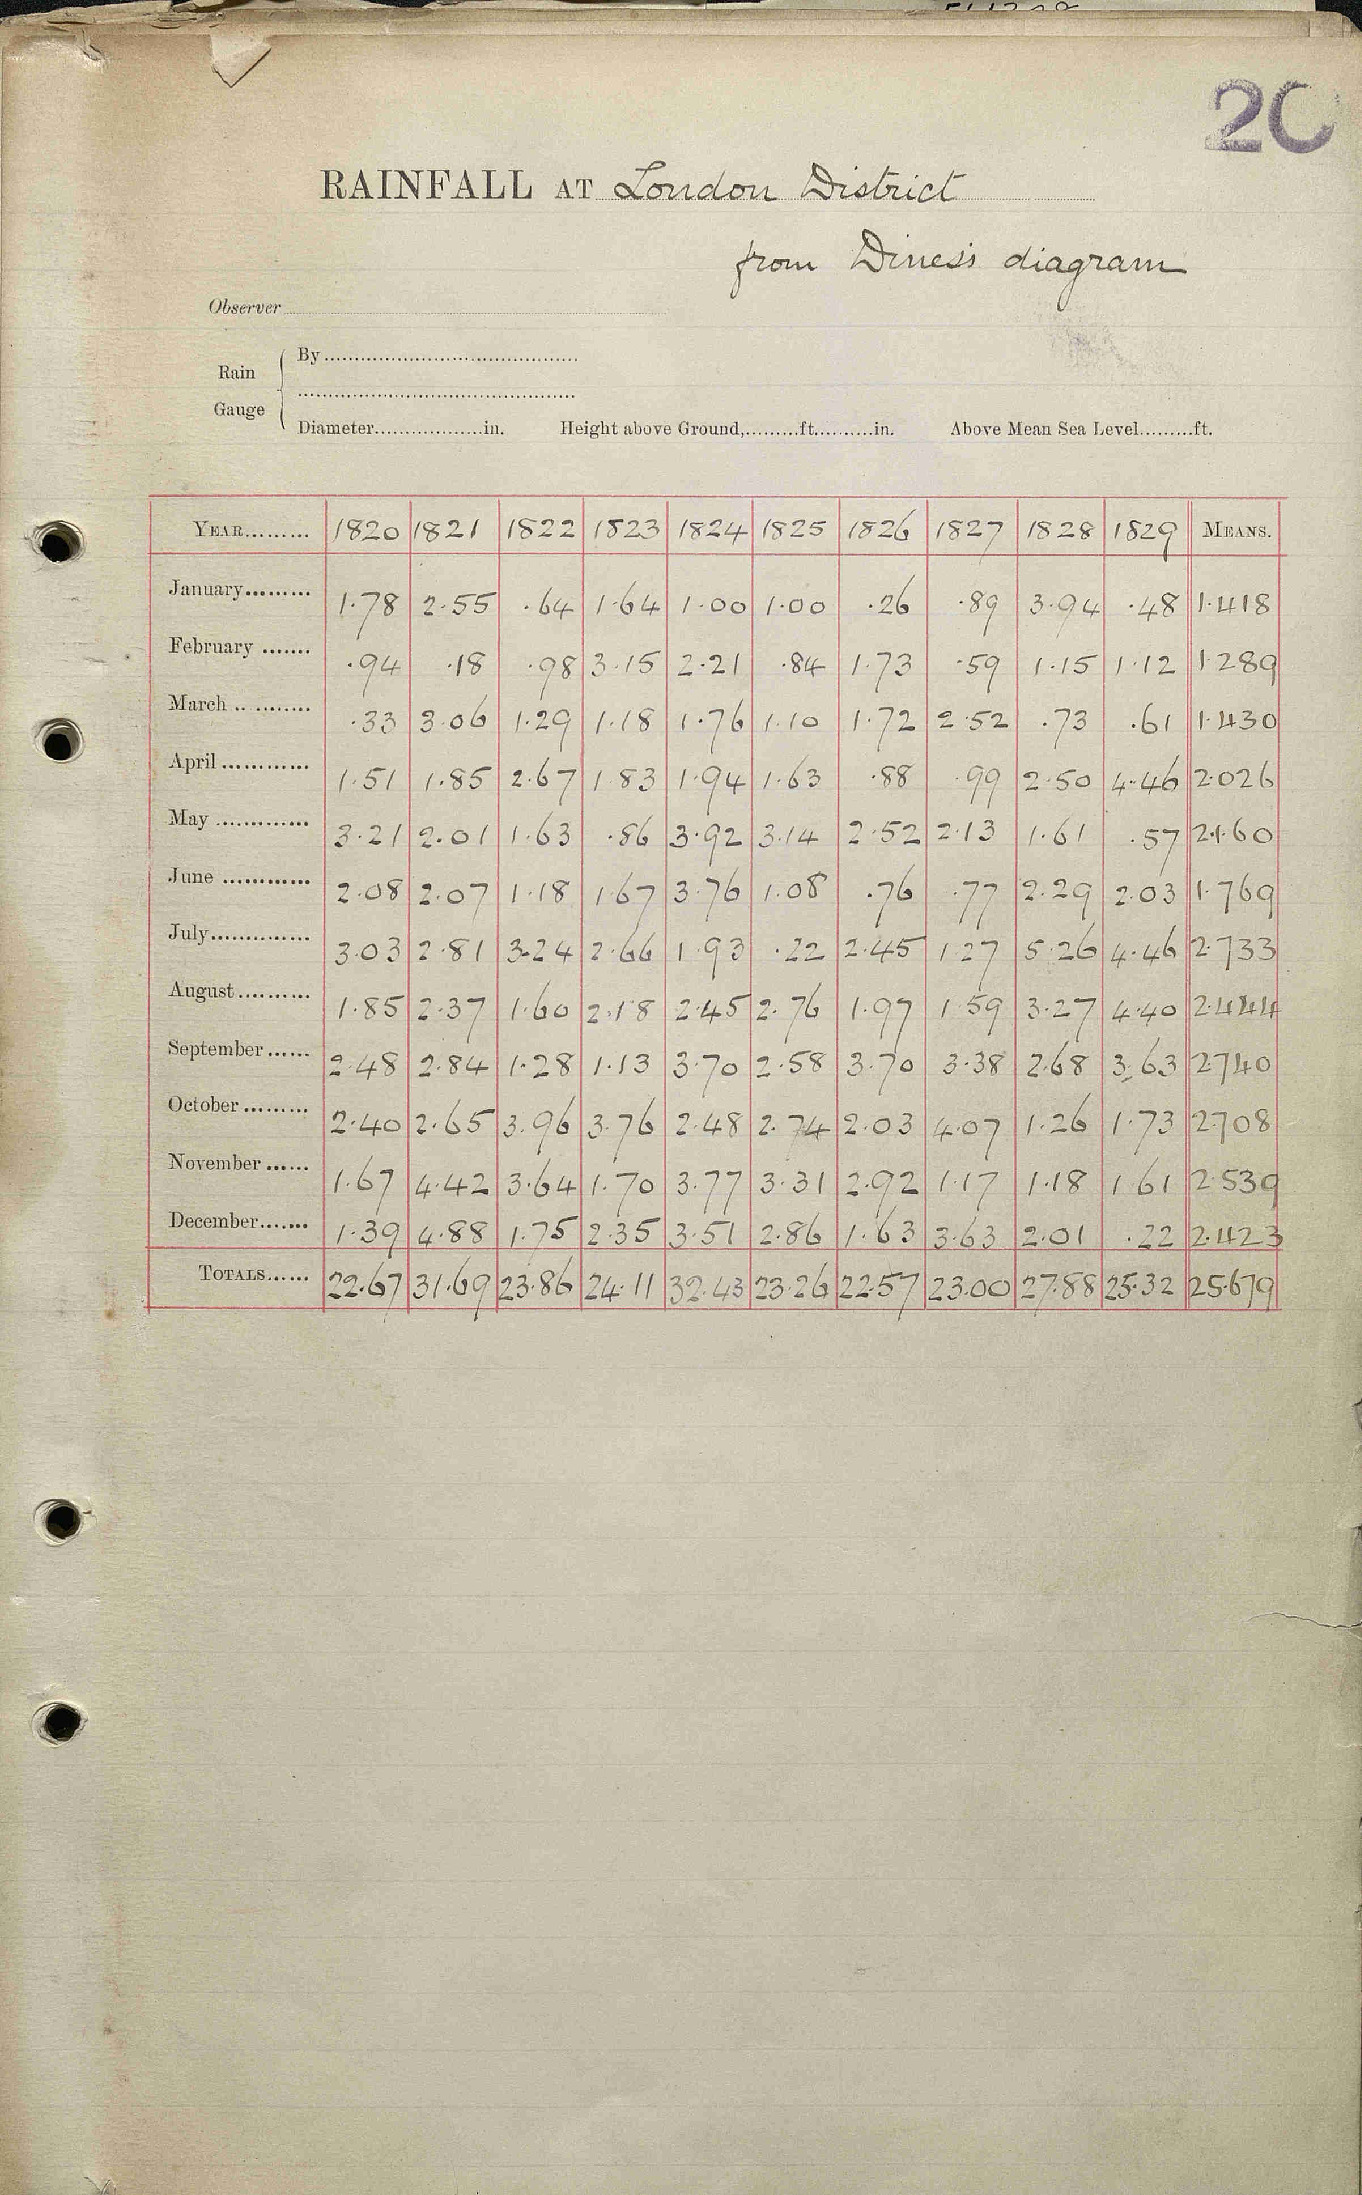 20
RAINFALL AT London District
from Dines's diagram
Observer
Rain Gauge
By
Diameter..................in. Height above Ground,.........ft..........in. Above Mean Sea Level.........ft.
YEAR......... 1820 1821 1822 1823 1824 1825 1826 1827 1828 1829 MEANS.
January......... 1.78 2.55 .64 1.64 1.00 1.00 .26 .89 3.94 .48 1.418
February ....... .94 .18 .98 3.15 2.21 .84 1.73 .59 1.15 1.12 1.289
March ............ .33 3.06 1.29 1.18 1.76 1.10 1.72 2.52 .73 .61 1.430
April ............ 1.51 1.85 2.67 1.83 1.94 1.63 .88 .99 2.50 4.46 2.026
May ............. 3.21 2.01 1.63 .86 3.92 3.14 2.52 2.13 1.61 .57 2.160
June ............ 2.08 2.07 1.18 1.67 3.76 1.08 .76 .77 2.29 2.03 1.769
July.............. 3.03 2.81 3.24 2.66 1.93 .22 2.45 1.27 5.26 4.46 2.733
August.......... 1.85 2.37 1.60 2.18 2.45 2.76 1.97 1.59 3.27 4.40 2.444
September ...... 2.48 2.84 1.28 1.13 3.70 2.58 3.70 3.38 2.68 3.63 2.740
October ......... 2.40 2.65 3.96 3.76 2.48 2.74 2.03 4.07 1.26 1.73 2.708
November ...... 1.67 4.42 3.64 1.70 3.77 3.31 2.92 1.17 1.18 1.61 2.539
December....... 1.39 4.88 1.75 2.35 3.51 2.86 1.63 3.63 2.01 .22 2.423
TOTALS...... 22.67 31.69 23.86 24.11 32.43 23.26 22.57 23.00 27.88 25.32 25.679